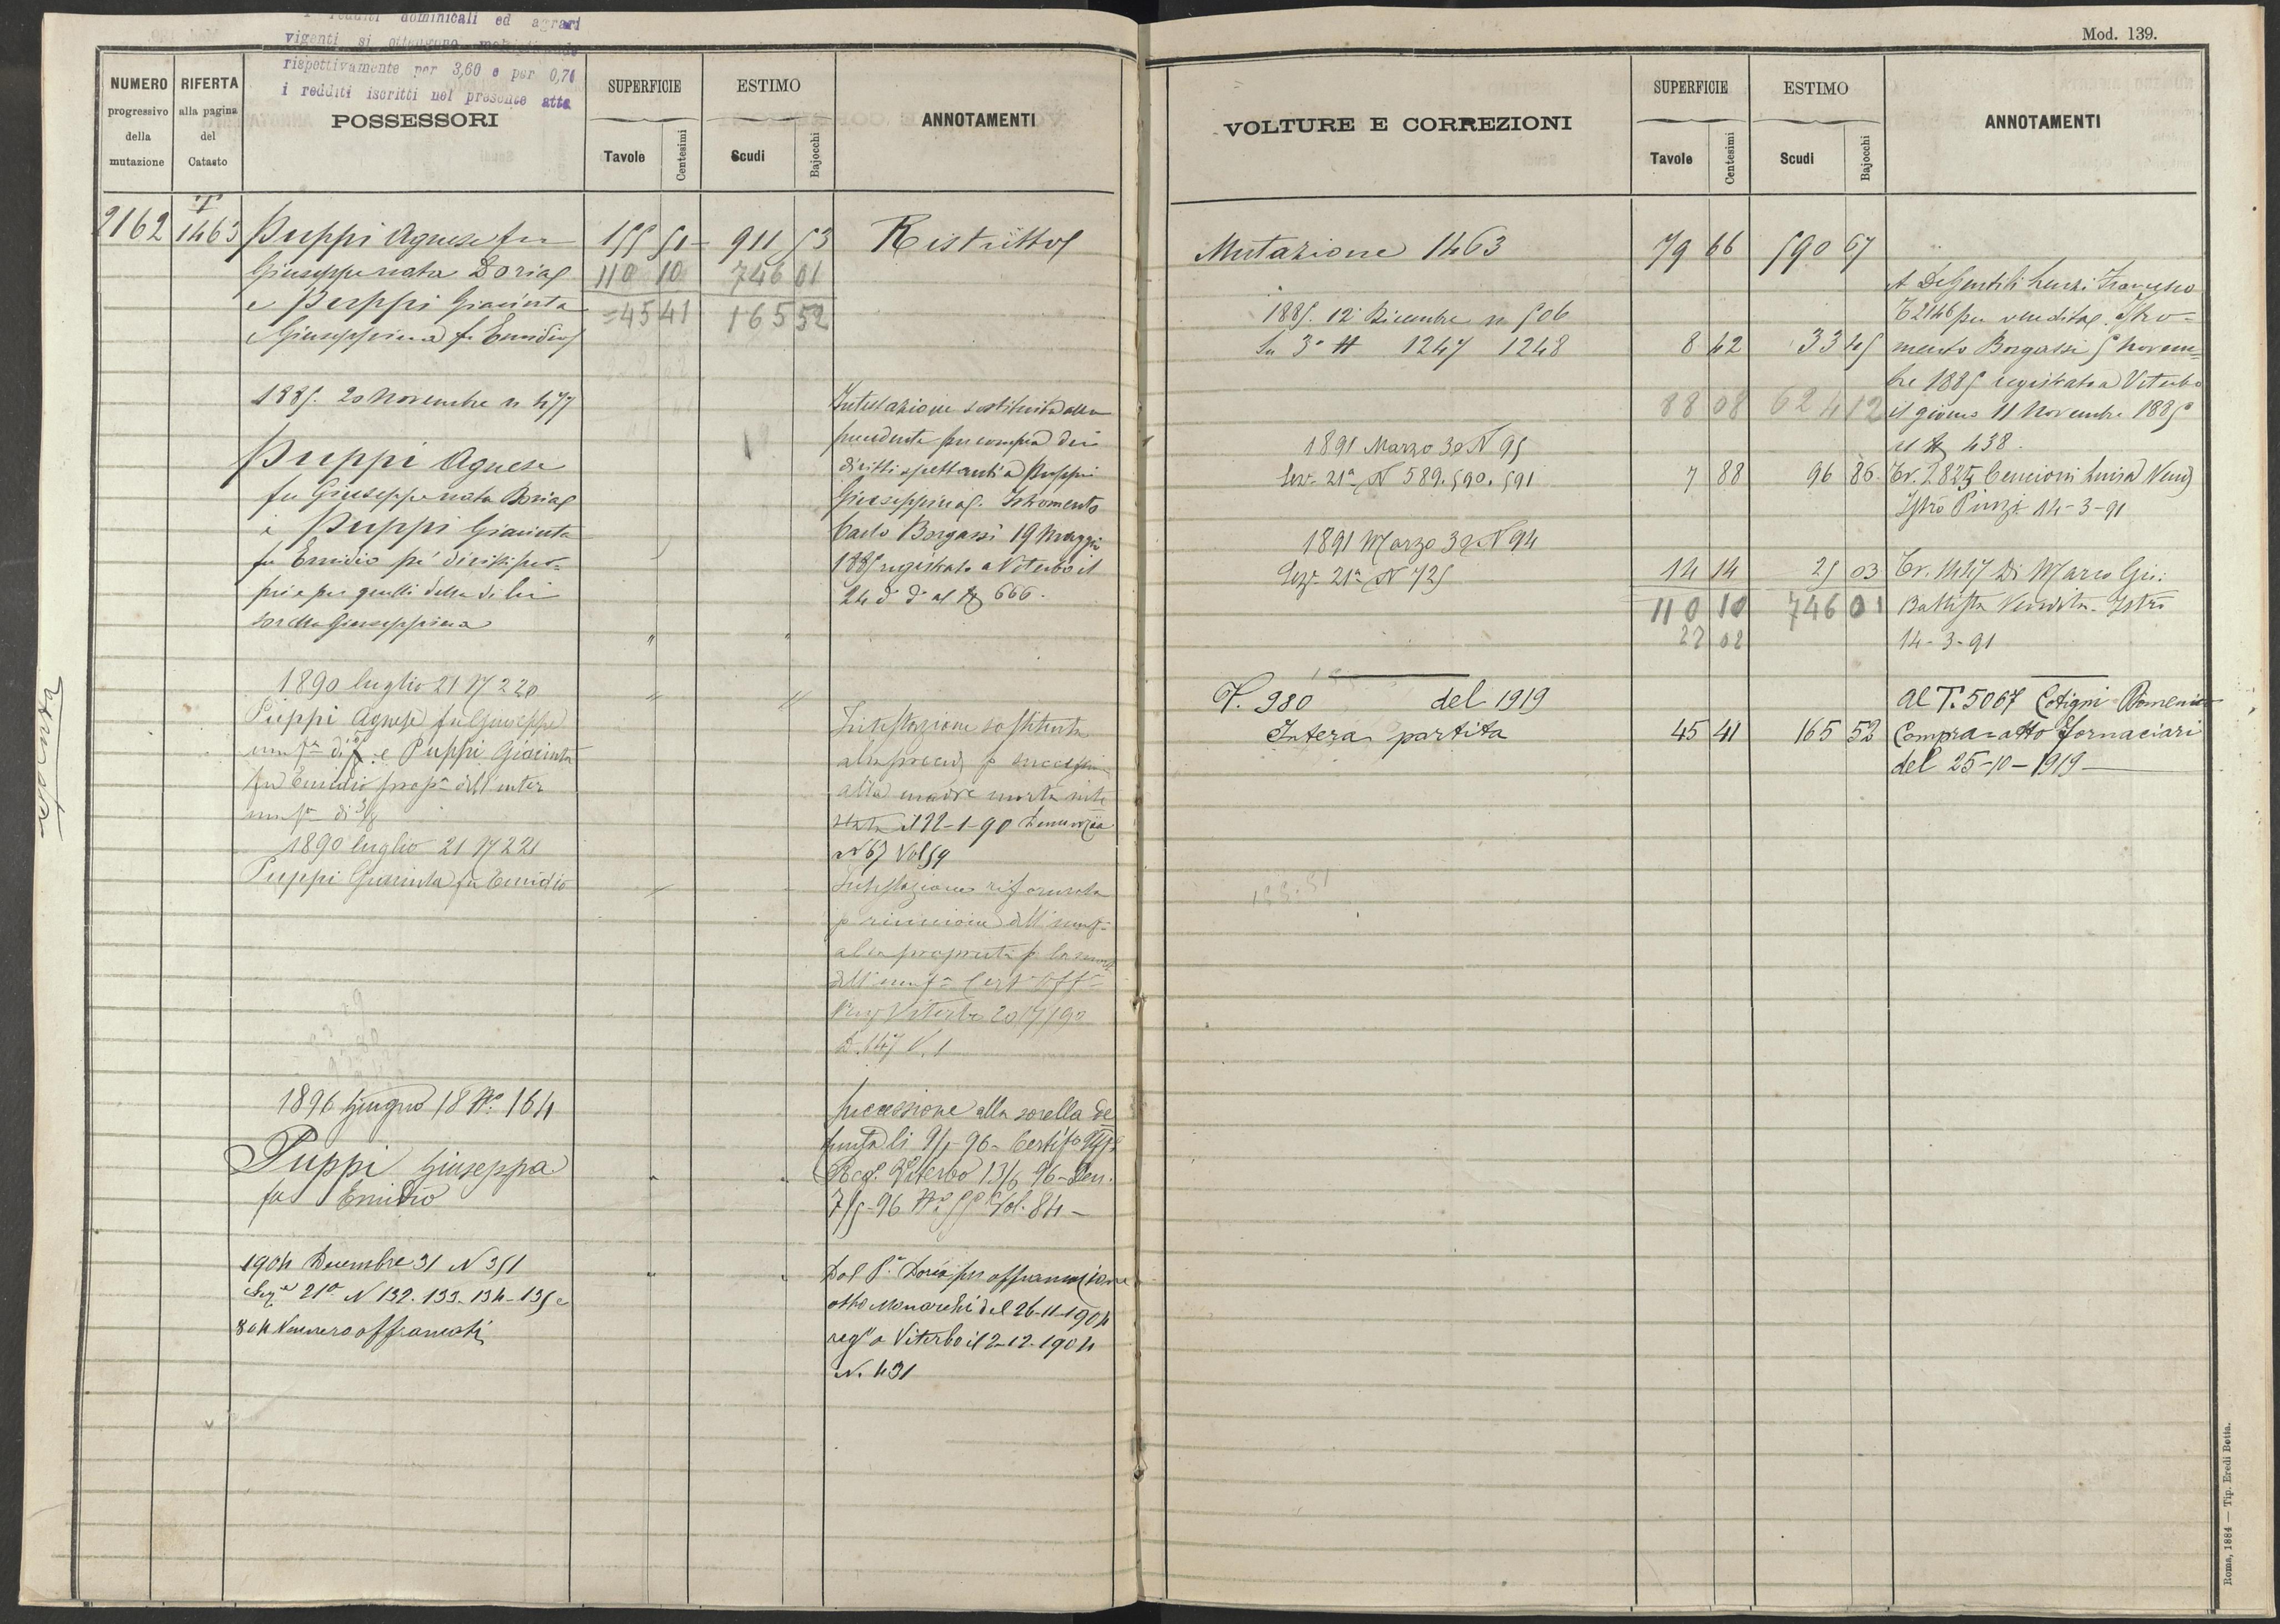 i redditi dominicali ed agrari
vigenti si ottengono
rispettivamente per 3,60 e per 0,70
i redditi iscritti nel presente atto
NUMERO
progressivo
della
mutazione
RIFERTA
alla pagina
del
Catasto
POSSESSORI
SUPERFICIE
Tavole
Centesimi
ESTIMO
Scudi
Bajocchi
ANNOTAMENTI
2162
T
1463
Puppi Agnese fu
Giuseppe nata Doria
e Puppi Giacinta
e Giuseppina fu Emidio
155 51
911 53
110 10
746 01
=45 41
165 52
Ristretto
1885. 20 Novembre n 477
Puppi Agnese
fu Giuseppe nata Doria
e Puppi Giacinta
fu Emidio pei diritti pro=
pri e per quelli della di lei
sorella Giuseppina
Intestazione sostituita alla
precedente per compra dei
diritti spettanti a Puppi
Giuseppina. Istromento
Carlo Borgassi 19 Maggio
1885 registrato a Viterbo il
24 d° d° al N 666.
1890 luglio 21 N 220
Puppi Agnese fu Giuseppe
e Puppi Giacinta
fu Emidio
Intestazione sostituita
alla madre morta inte
stata il 22-1-90 Denunzia
N 67 Vol 59
1890 luglio 21 N 221
Puppi Giacinta fu Emidio
Intestazione riformata
Viterbo 20/7/90
1896 Giugno 18 N° 164
Puppi Giuseppa
fu Emidio
Successione alla sorella de
funta li
Viterbo 13/6 96 - Den.
Vol. 84 -
1904 Decembre 31 N 351
Sez.e 21a N 132. 133. 134 - 135 e
804 Vennero affrancati
Dal P.e Doria per affrancazione
atto Monarchi del 26-11-1904
reg° a Viterbo il 2-12-1904
N. 431
Mod. 139.
VOLTURE E CORREZIONI
SUPERFICIE
Tavole
Centesimi
ESTIMO
Scudi
Bajocchi
ANNOTAMENTI
Mutazione 1463
79 66
590 67
1885. 12 Dicembre n 506
Su 3a N 1247 1248
8 42
33 45
88 08
624 12
A DeGentili Luzi Francesco
T 2146 per vendita. Istro=
mento Borgassi 5 Novem=
bre 1885 registrato a Viterbo
il giorno 11 Novembre 1885
al N 438.
1891 Marzo 30 N 95
Sez. 21a N 589. 590. 591
7 88
96 86
Tr. 2825 Cencioni Luisa Vend
Istro Pinzi 14-3-91
1891 Marzo 30 N 94
Sez. 21a N 725
14 14
25 03
110 10
746 01
22 02
Tr. 1447 Di Marco Gio:
Battista Vendita - Istro
14-3-91
V. 980 del 1919
Intera partita
45 41
165 52
Al T. 5067 Cotigni Domenico
Compra = atto Fornaciari
del 25-10-1919
155.51
Roma, 1884 — Tip. Eredi Botta.